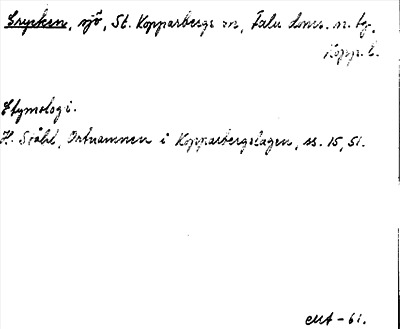 Grycken, sjö, St. Kopparbergs sn, Falu doms. n. tg,
Kopp. l.
Etymologi.
H. Ståhl, Ortnamnen i Kopparbergslagen, ss. 15, 51.
-61.